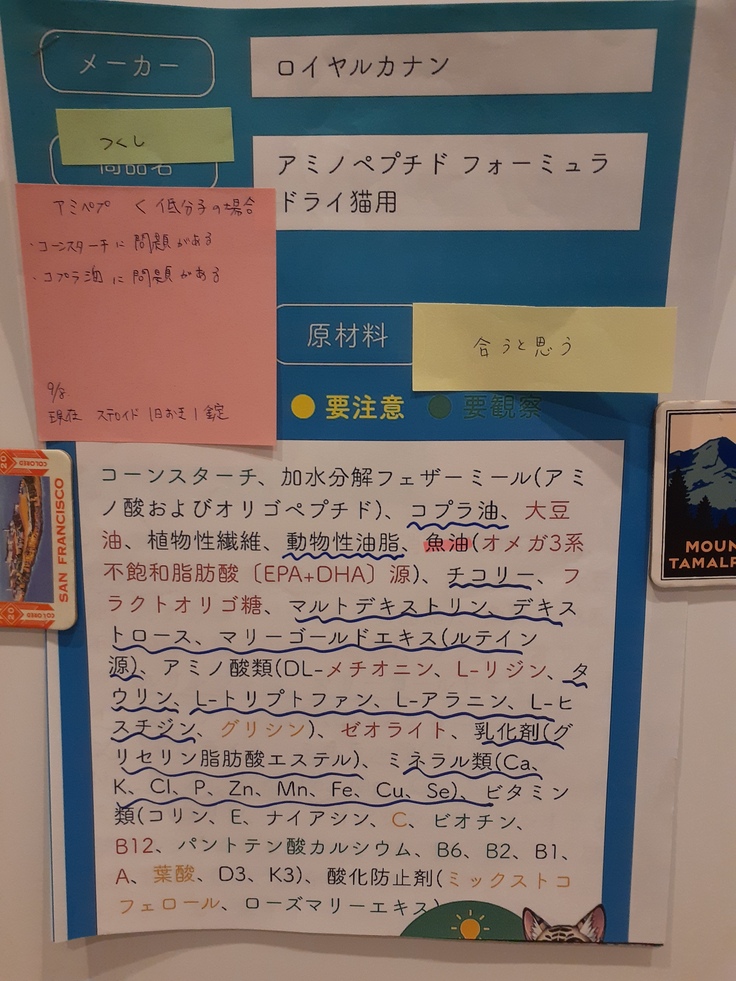 メーカー
ロイヤルカナン
つくし
商品名
アミノペプチド フォーミュラ
ドライ猫用
アミペプ く 低分子の場合
・コーンスターチに 問題がある
・コプラ油に 問題がある
9/8
現在 ステロイド 1日おき 1錠
原材料
合うと思う
要注意
要観察
コーンスターチ、加水分解フェザーミール(アミ
ノ酸およびオリゴペプチド)、コプラ油、大豆
油、植物性繊維、動物性油脂、魚油(オメガ3系
不飽和脂肪酸〔EPA+DHA〕源)、チコリー、フ
ラクトオリゴ糖、マルトデキストリン、デキス
トロース、マリーゴールドエキス(ルテイン
源)、アミノ酸類(DL-メチオニン、L-リジン、タ
ウリン、L-トリプトファン、L-アラニン、L-ヒ
スチジン、グリシン)、ゼオライト、乳化剤(グ
リセリン脂肪酸エステル)、ミネラル類(Ca、
K、Cl、P、Zn、Mn、Fe、Cu、Se)、ビタミン
類(コリン、E、ナイアシン、C、ビオチン、
B12、パントテン酸カルシウム、B6、B2、B1、
A、葉酸、D3、K3)、酸化防止剤(ミックストコ
フェロール、ローズマリーエキス)
COLORED
SAN FRANCISCO
COLORED
MOUN
TAMALP